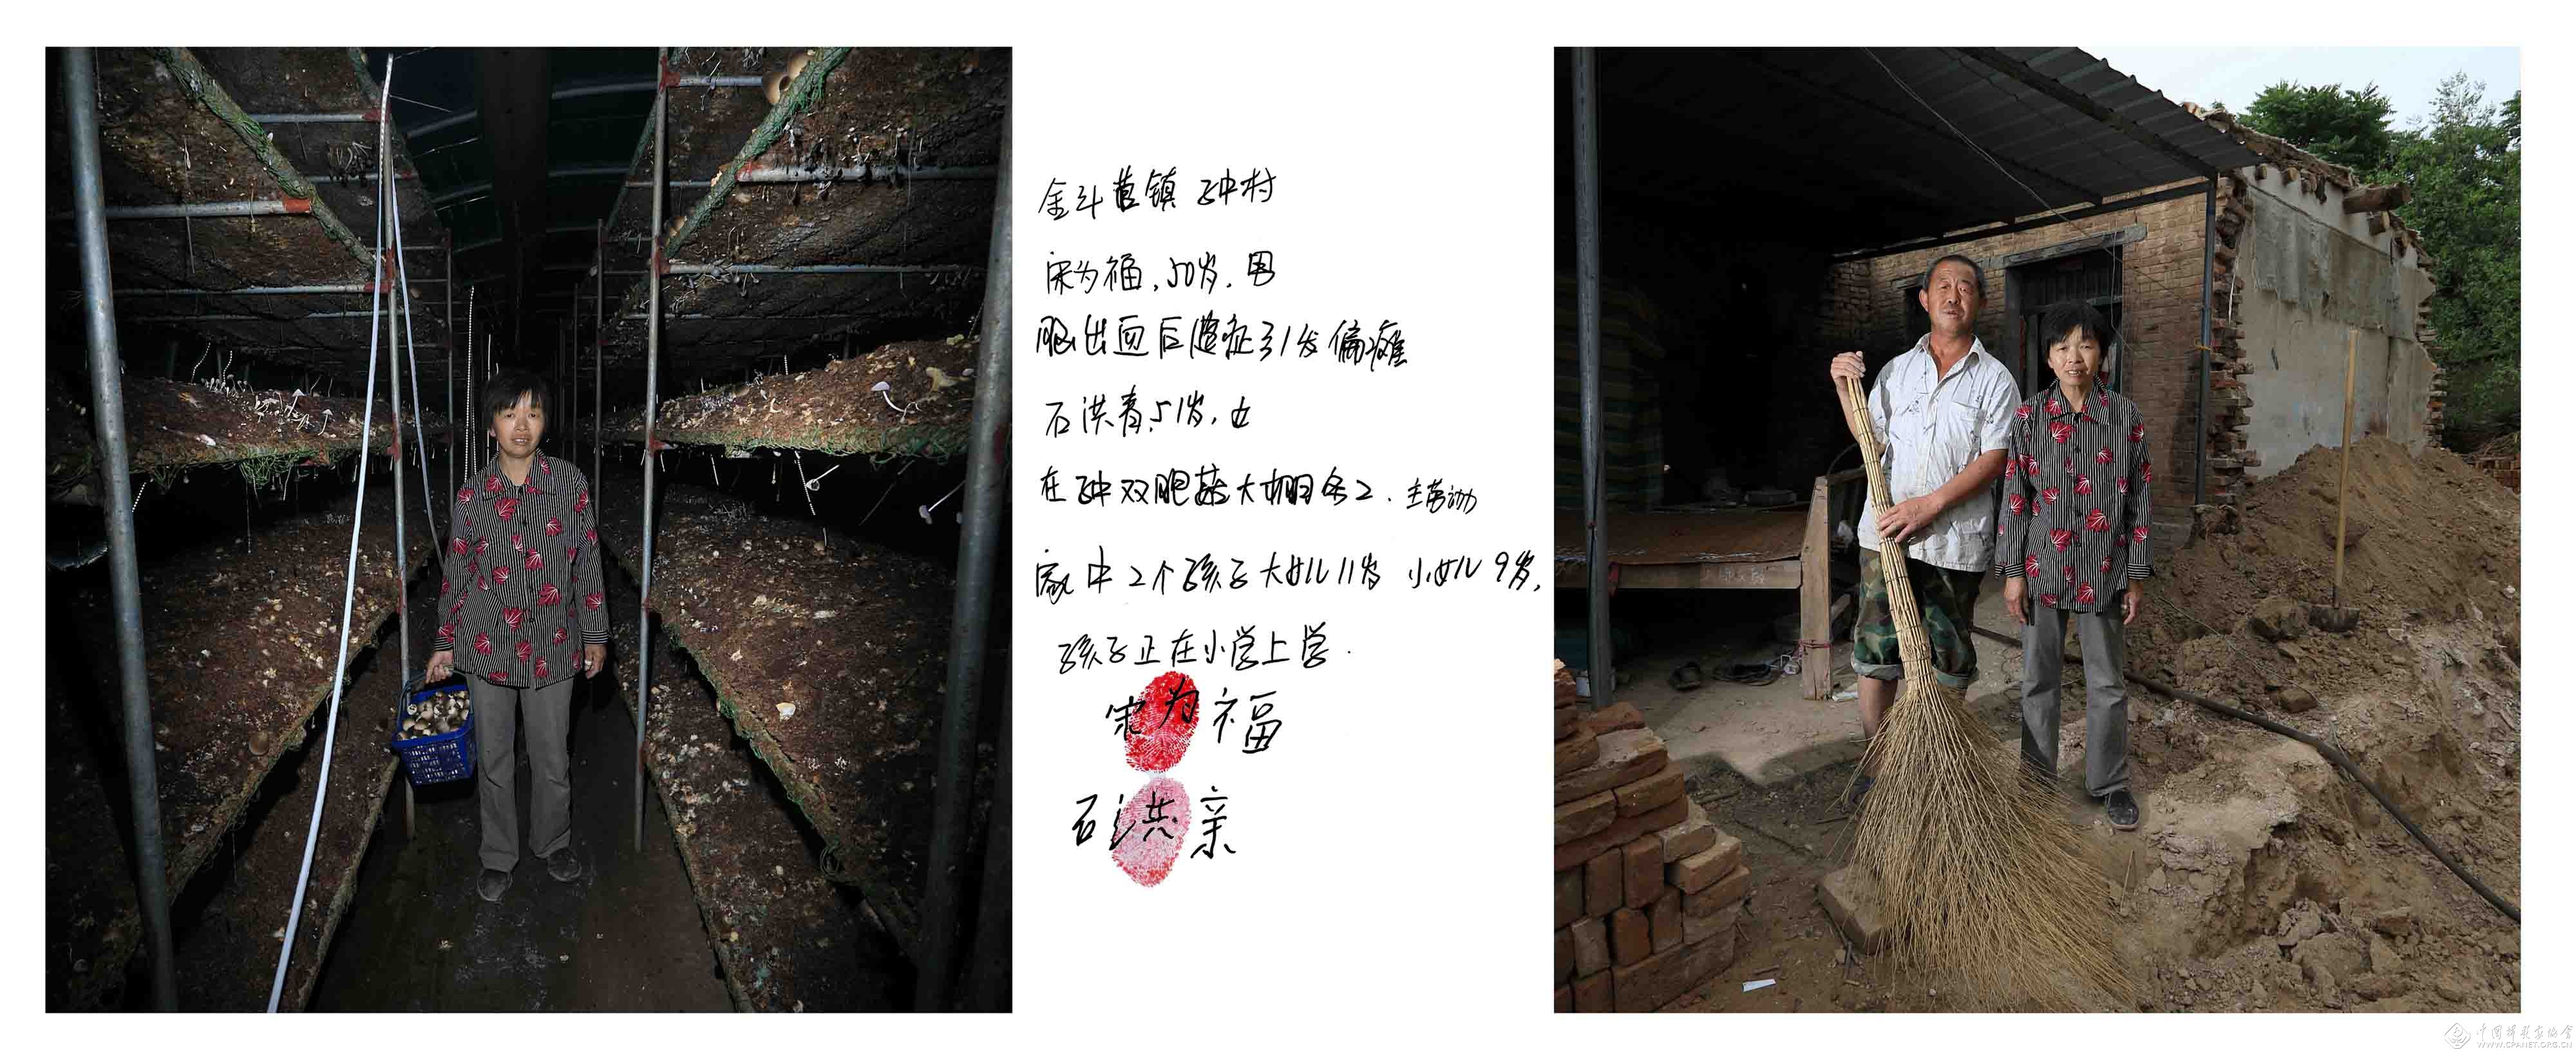 金斗营镇 村
宋为福,50岁.男
脑出血后遗症引发偏瘫
石洪青,51岁,女
在种双胞菇大棚务工. 主劳动
家中2个孩子大女儿11岁 小女儿9岁,
孩子正在小学上学.
宋为福
石洪亲
中国摄影家协会
WWW.CPANET.ORG.CN